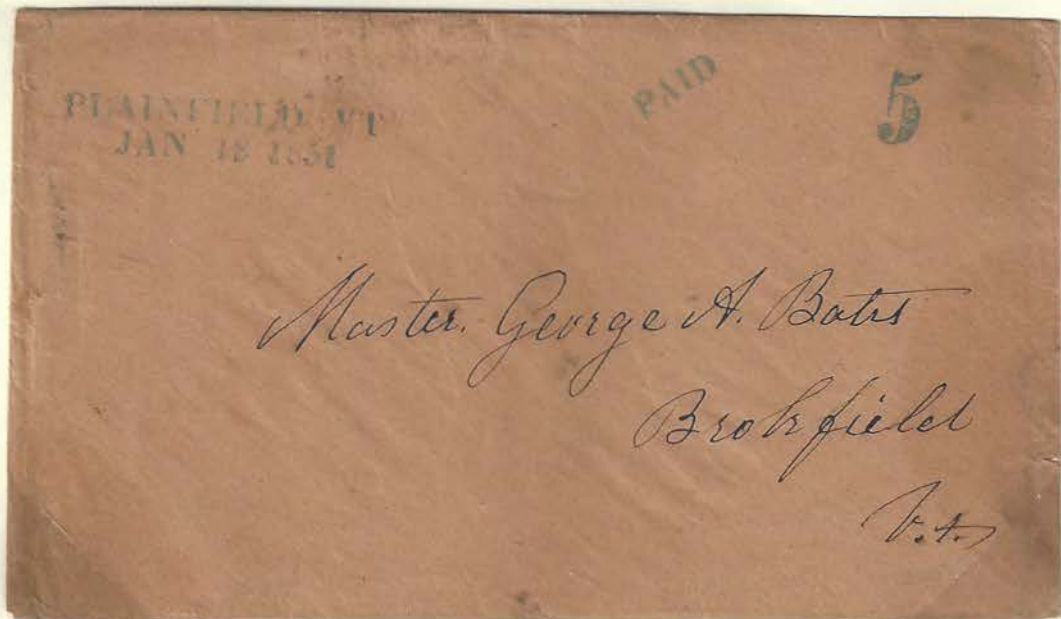 PLAINFIELD VT
JAN 18 1851
PAID
5
Master. George A. Bates
Brokfield
V.t.